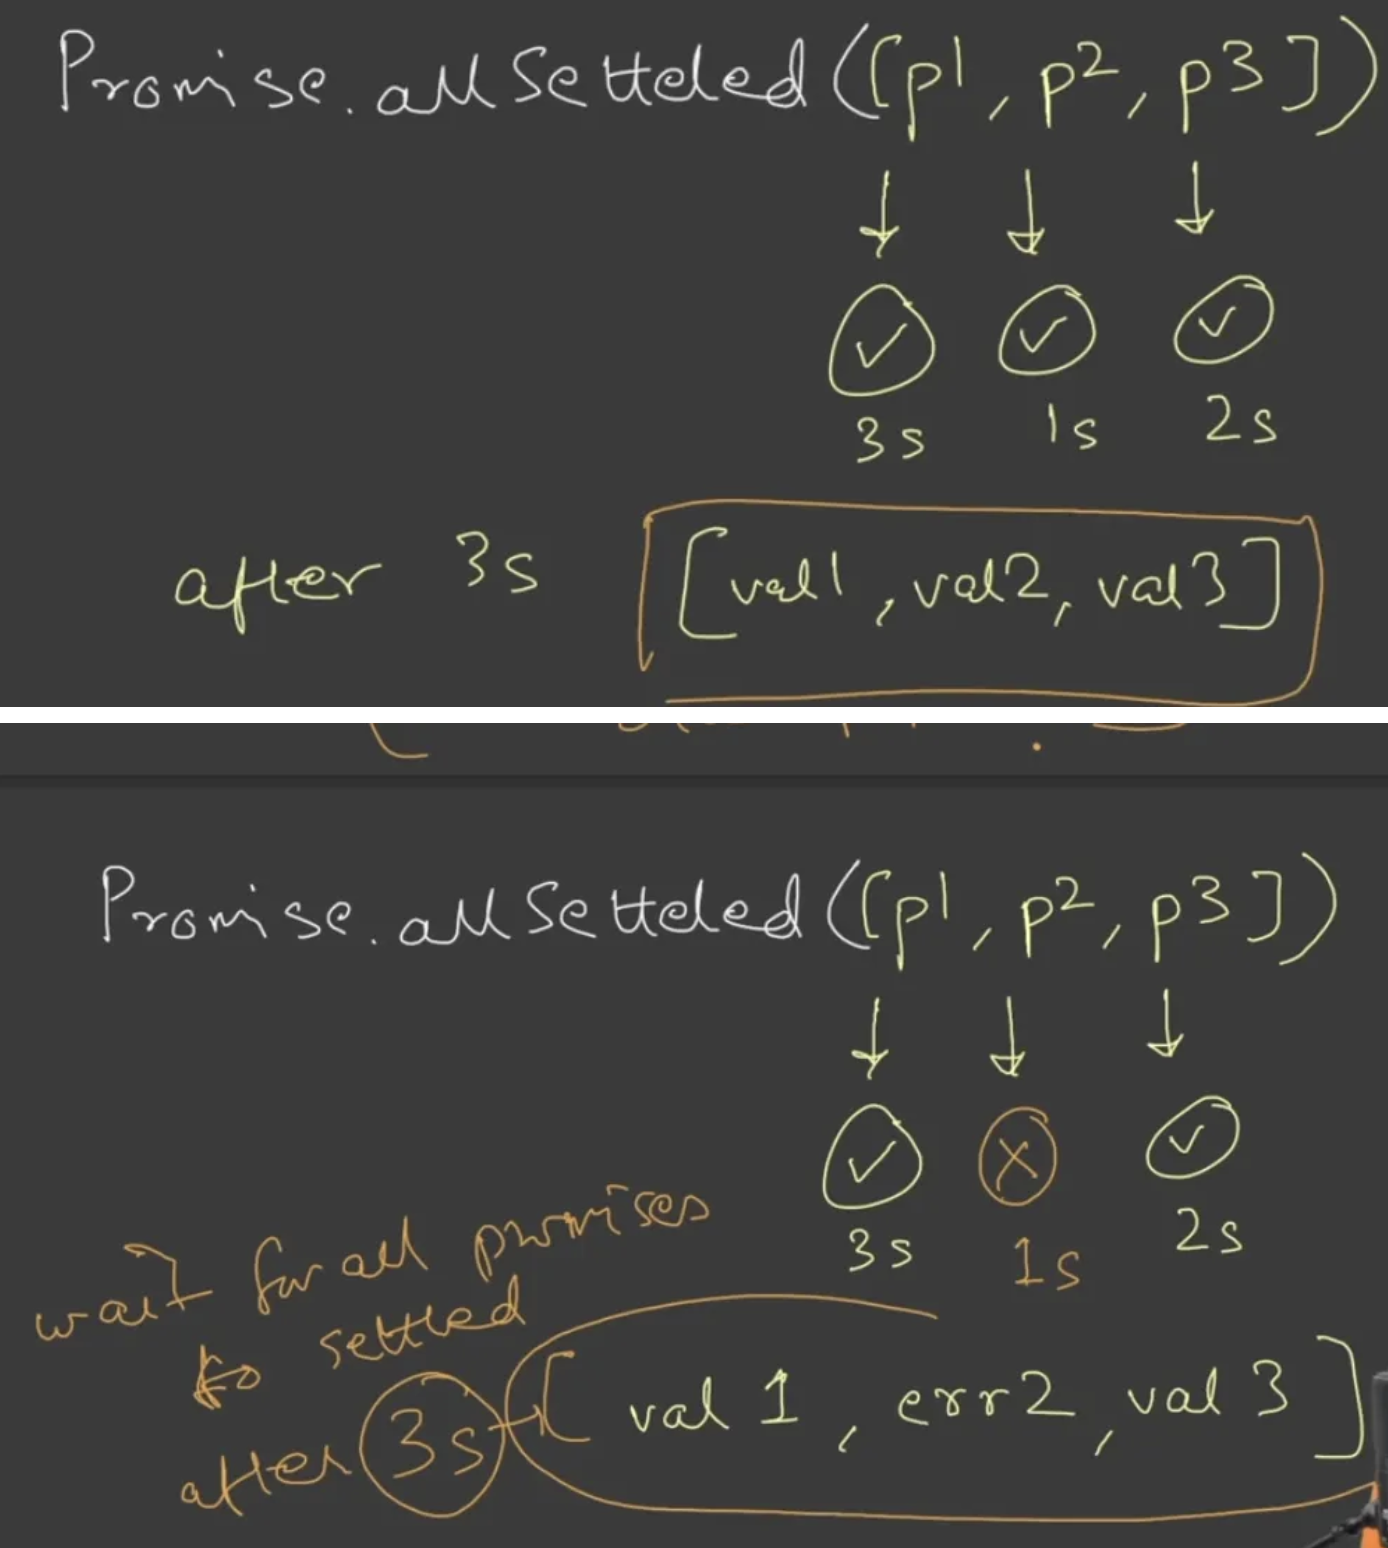 Promise.allSetteled([p1, p2, p3])
3s 1s 2s
after 3s [val1, val2, val3]
Promise.allSetteled([p1, p2, p3])
3s 1s 2s
wait for all promises
to settled
after 3s [val 1, err2, val 3]